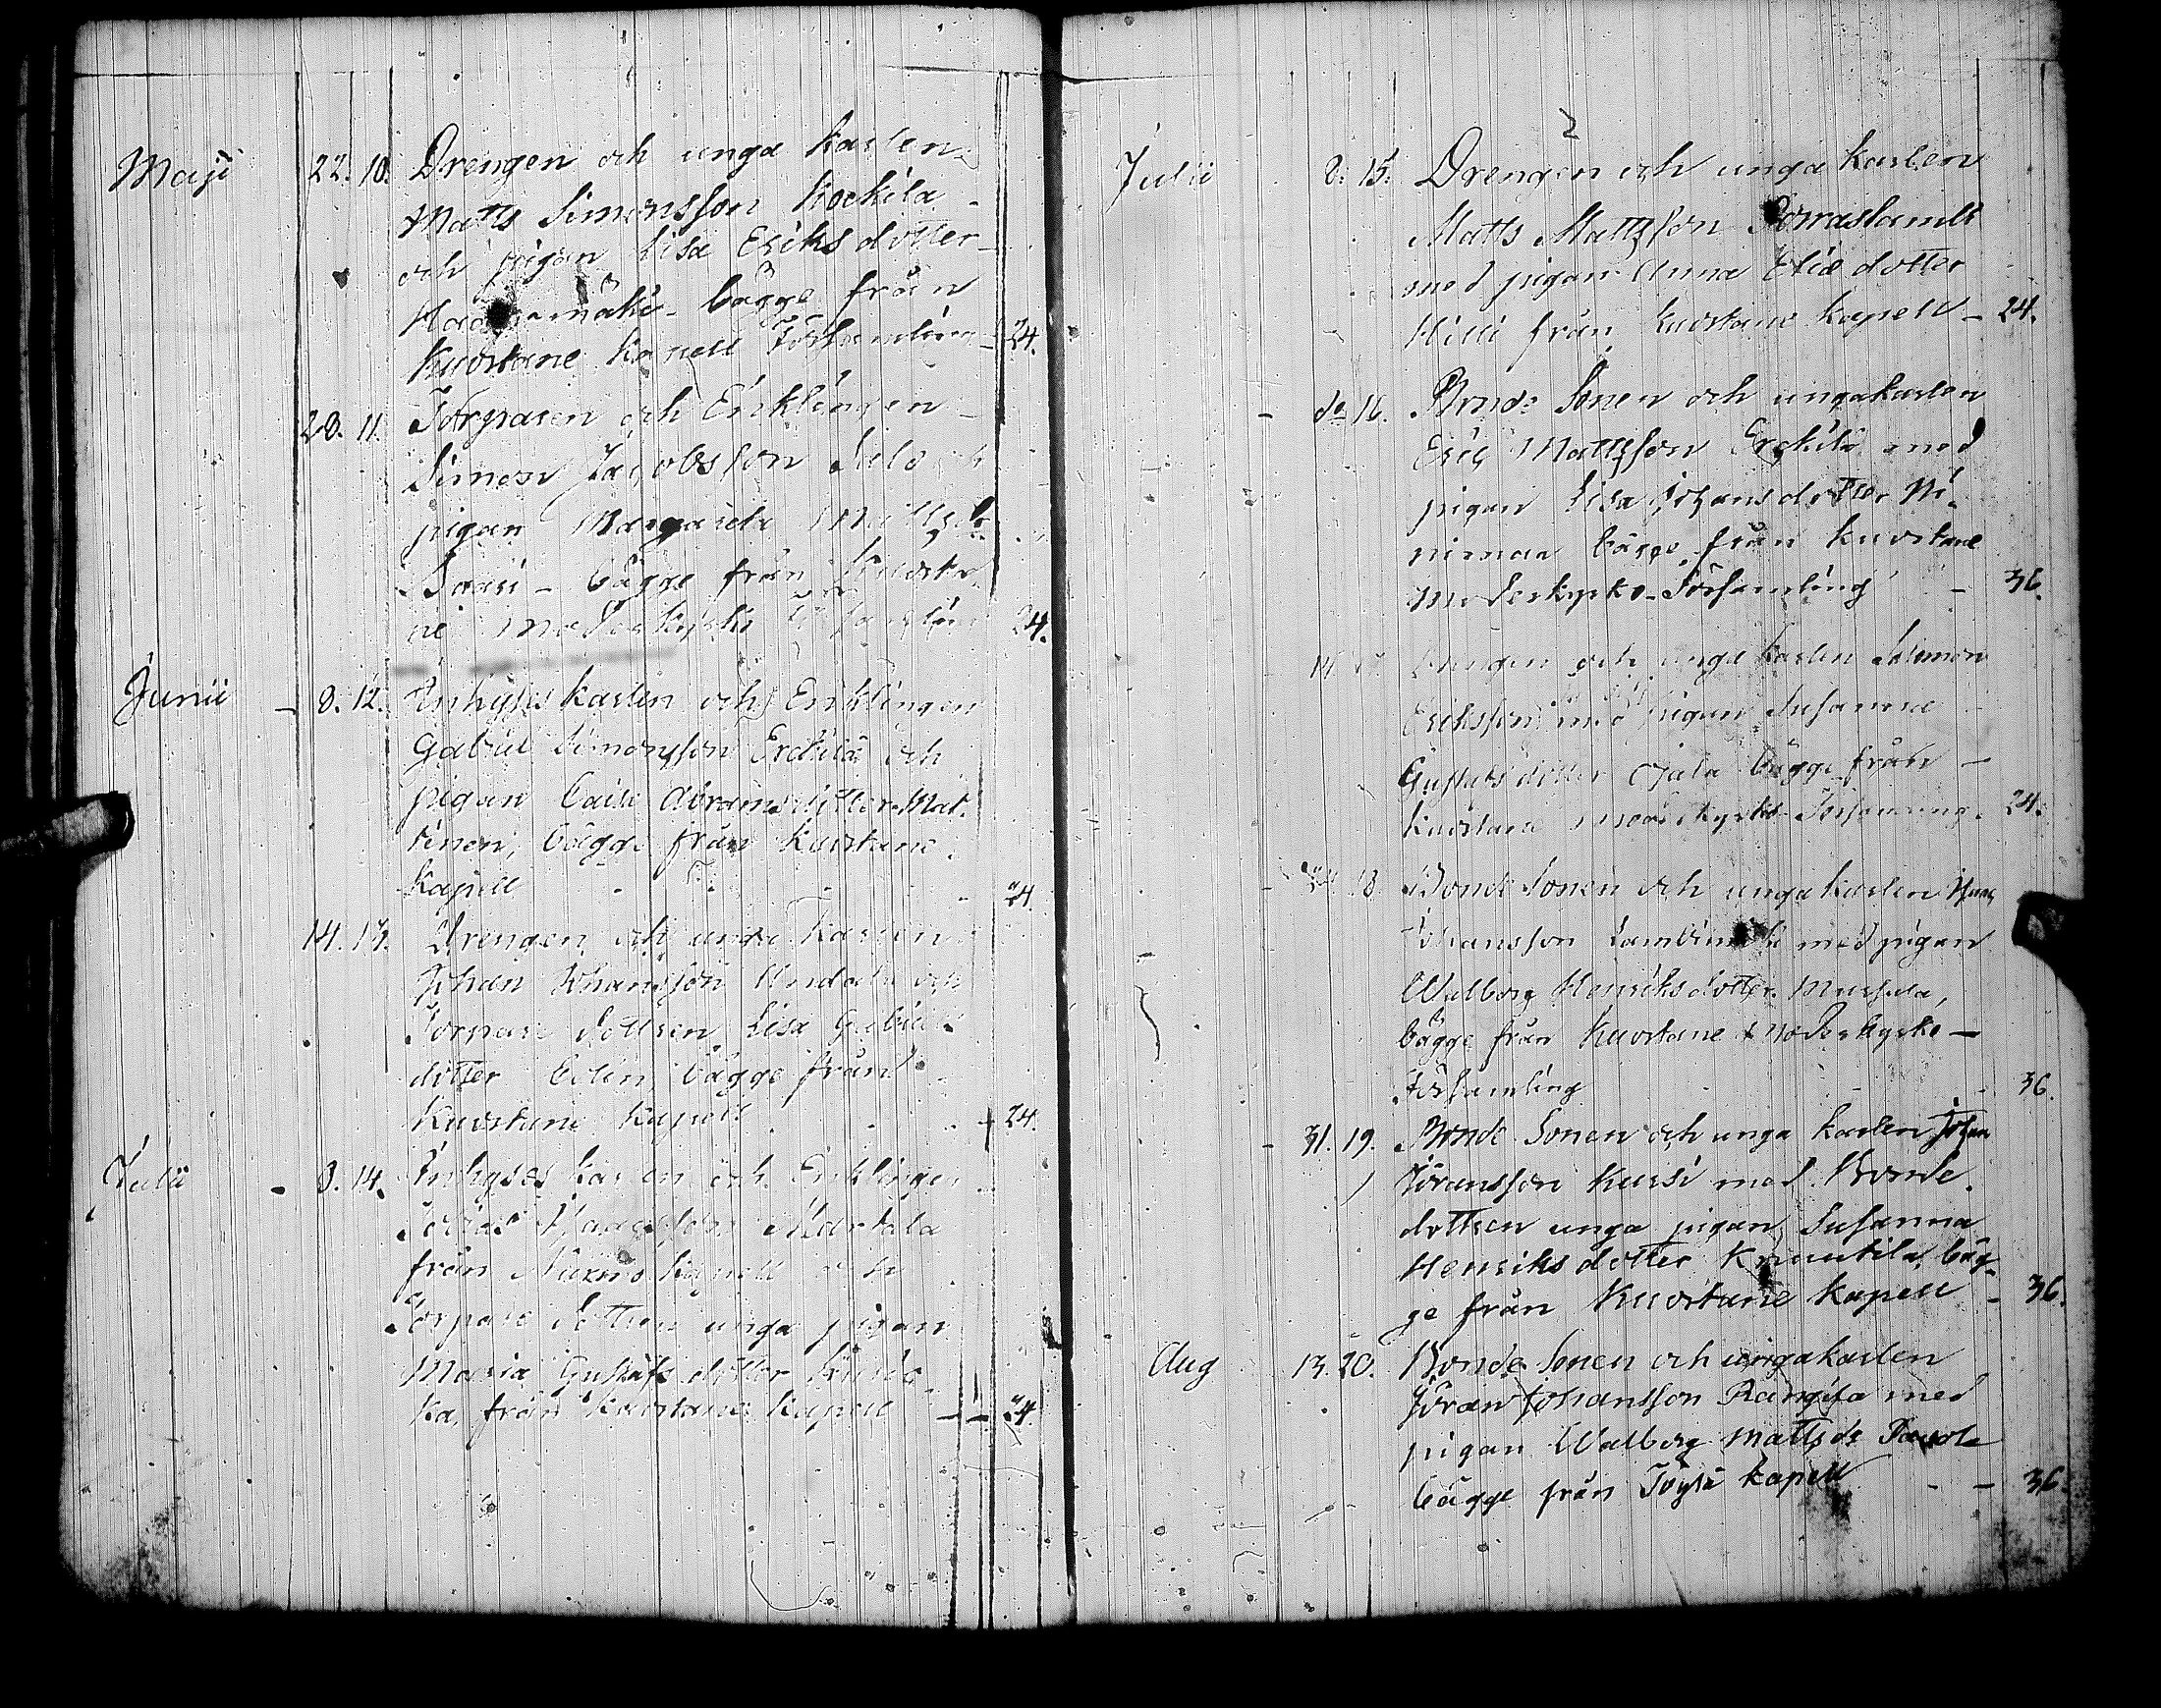 Maji 22. 10. Drengen och unga karlen
Matts Simonsson Kockila
och pigan Lisa Eriksdotter
mäki bägge från
Kuortane Kapell Församling 24.
28. 11. Torparen och Enklingen
Simon Jacobsson
pigan Margareta Mattsdr
bägge från Kuorta
ne Moderkyrko Församling 24.
Junii 8. 12. Inhyses karlen och Enklingen
Gabriel Simonsson Erckilä och
pigan Caisa Abramsdotter Mat
tinen, bägge från Kuortane
Kapell 24.
14. 13. Drengen och unga karlen
Johan Johansson och
Torpare dottren Lisa Gabriels
dotter bägge från
Kuortane Kapell 24.
Julii 8. 14. Inhyses karlen och Enklingen
Isaacsson Martala
från Kapell och
Torpare dottren unga pigan
Maria Gustafsdotter
ka, från Kuortane Kapell 24.
2
Julii 8. 15. Drengen och unga karlen
Matts Mattsson Porraslamb
med pigan Anna Eliædotter
Hilli från Kuortane Kapell 24.
do 16. Bonde Sonen och unga karlen
Eric Mattsson Erckilä med
pigan Lisa Johansdotter Ni
nimaa bägge från Kuortane
Moderkyrko Församling 36.
14. 17. Drengen och unga karlen Salomon
Eriksson med pigan Susanna
Gustafsdotter Ojala bägge från
Kuortane Moderkyrko Församling 24.
18. Bonde Sonen och unga karlen
Johansson Lambimäki med pigan
Walborg Henriksdotter
bägge från Kuortane Moderkyrko
Församling 36.
31. 19. Bonde Sonen och unga karlen Johan
Jöransson Kursi med Bonde
dottren unga pigan Susanna
Henriksdotter Knuutila, bäg
ge från Kuortane Kapell 36.
Aug 13. 20. Bonde Sonen och unga karlen
Jöran Johansson Rangila med
pigan Walborg Mattsdr Pavola
bägge från Töysä Kapell 36.